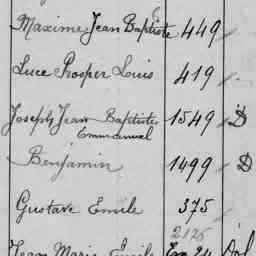 Maxime Jean Baptiste 449
Luce Prosper Louis 419
Joseph Jean Baptiste 1549 D
Emmanuel
Benjamin 1499 D
Gustave Emile 375
2126
Jean Marie Emile 24